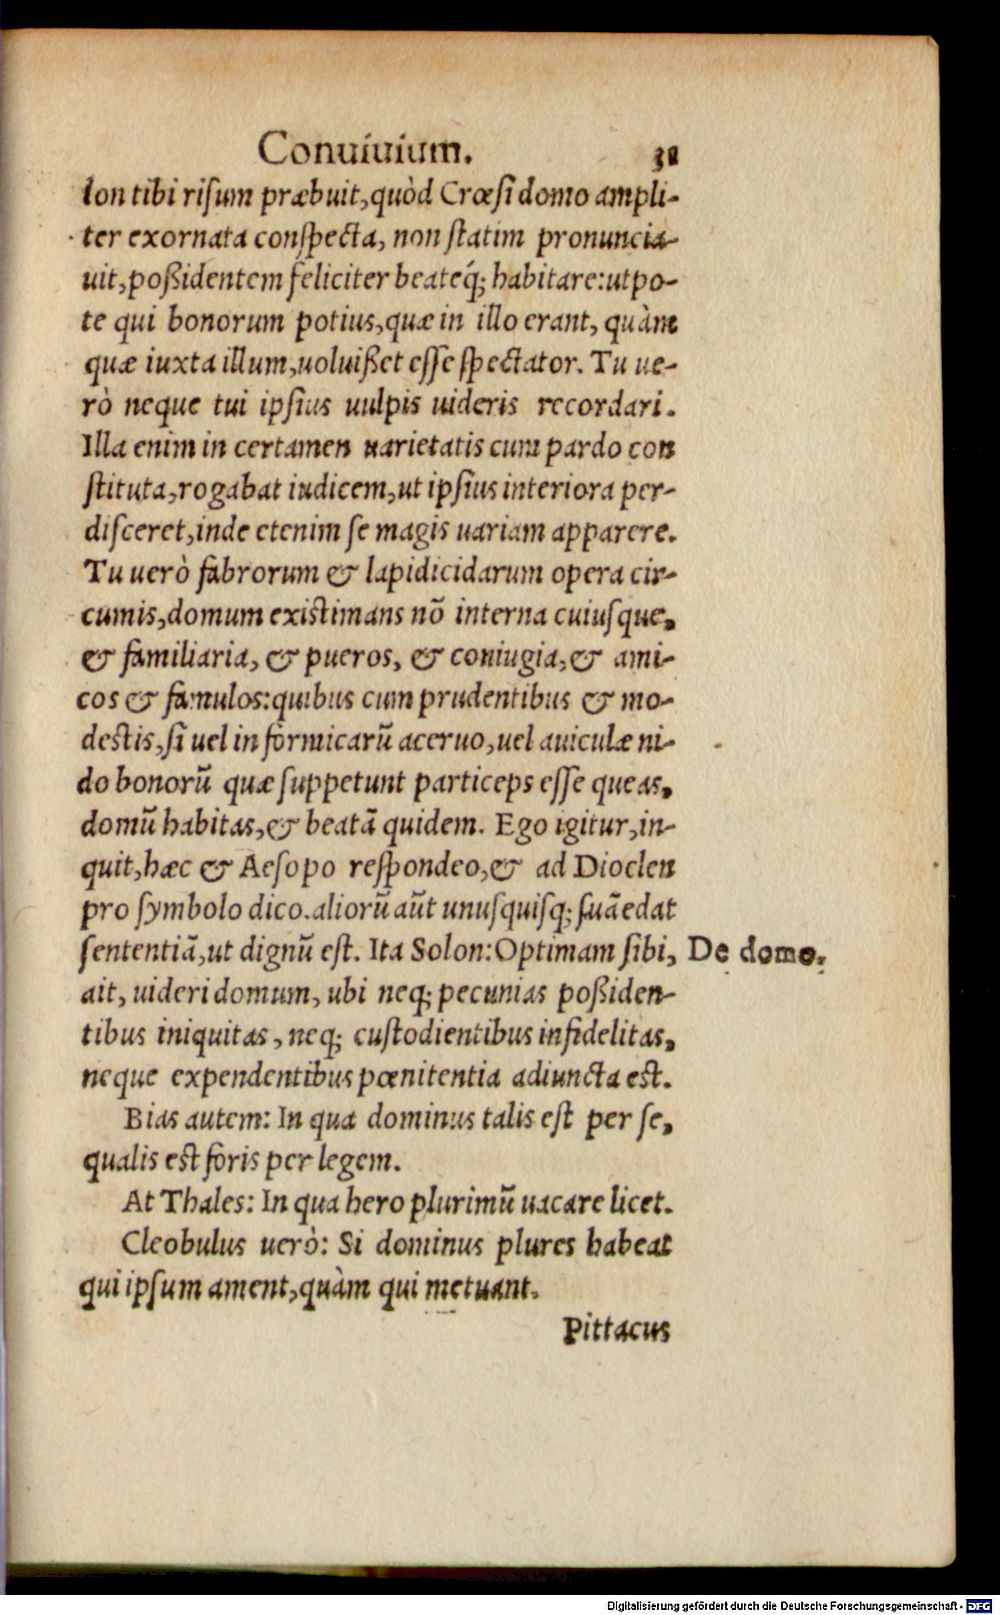 Conuiuium. 38
lon tibi risum præbuit, quòd Crœsi domo ampli-
ter exornata conspecta, non statim pronuncia-
uit, poßidentem feliciter beateq́; habitare: utpo-
te qui bonorum potius, quæ in illo erant, quàm
quæ iuxta illum, uoluißet esse spectator. Tu ue-
rò neque tui ipsius uulpis uideris recordari.
Illa enim in certamen uarietatis cum pardo con
stituta, rogabat iudicem, ut ipsius interiora per-
disceret, inde etenim se magis uariam apparere.
Tu uerò fabrorum & lapidicidarum opera cir-
cumis, domum existimans nō interna cuiusque,
& familiaria, & pueros, & coniugia, & ami-
cos & famulos: quibus cum prudentibus & mo-
destis, si uel in formicarū aceruo, uel auiculæ ni-
do bonorū quæ suppetunt particeps esse queas,
domū habitas, & beatā quidem. Ego igitur, in-
quit, hæc & Aesopo respondeo, & ad Dioclen
pro symbolo dico. aliorū aūt unusquisq; suā edat
sententiā, ut dignū est. Ita Solon: Optimam sibi, De domo.
ait, uideri domum, ubi neq; pecunias poßiden-
tibus iniquitas, neq; custodientibus infidelitas,
neque expendentibus pœnitentia adiuncta est.
Bias autem: In qua dominus talis est per se,
qualis est foris per legem.
At Thales: In qua hero plurimū uacare licet.
Cleobulus uerò: Si dominus plures habeat
qui ipsum ament, quàm qui metuant.
Pittacus
Digitalisierung gefördert durch die Deutsche Forschungsgemeinschaft - DFG